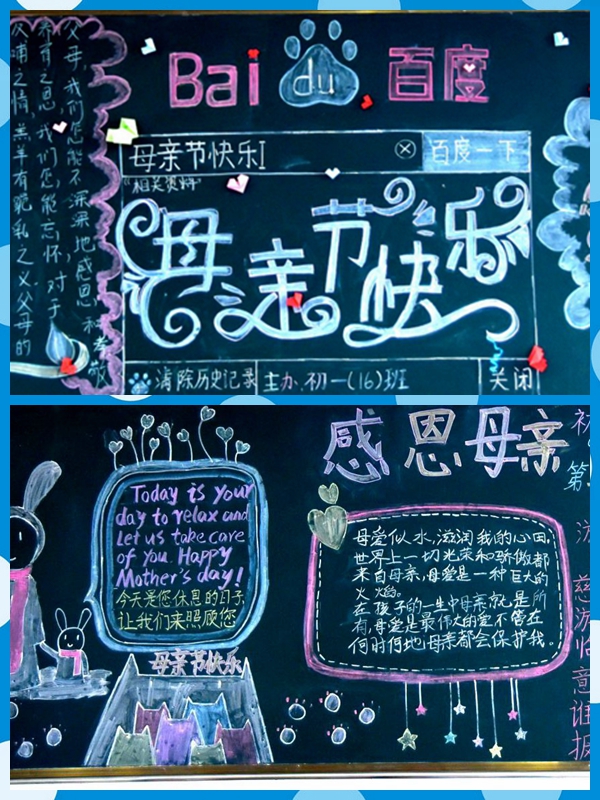 之情,羔羊有跪乳之义,父母的
养育之恩,我们怎能忘怀,对于
父母,我们怎能不深深地感恩和孝敬
Bai du 百度
母亲节快乐
百度一下
"相关资料"
母亲节快乐
清除历史记录
主办.初一(16)班
关闭
Today is your
day to relax and
Let us take care
of you. Happy
Mother's day!
今天是您休息的日子,
让我们来照顾您
母亲节快乐
感恩母亲
母爱似水,滋润我的心田,
世界上一切光荣和骄傲都
来自母亲,母爱是一种巨大的
火焰。
在孩子的一生中母亲就是所
有,母爱是最伟大的爱不管在
何时何地母亲都会保护我.
初
第
慈
游
临
意
谁
报